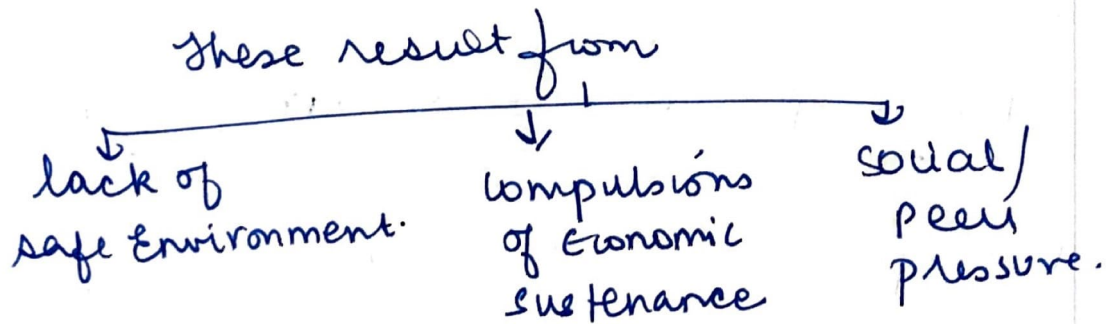 These result from
lack of
safe Environment.
compulsions
of Economic
sustenance
social/
peer
pressure.